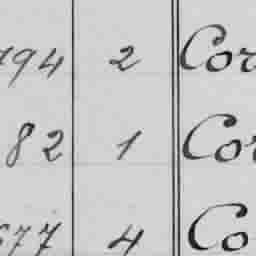 794 2 Cor
82 1 Cor
677 4 Co